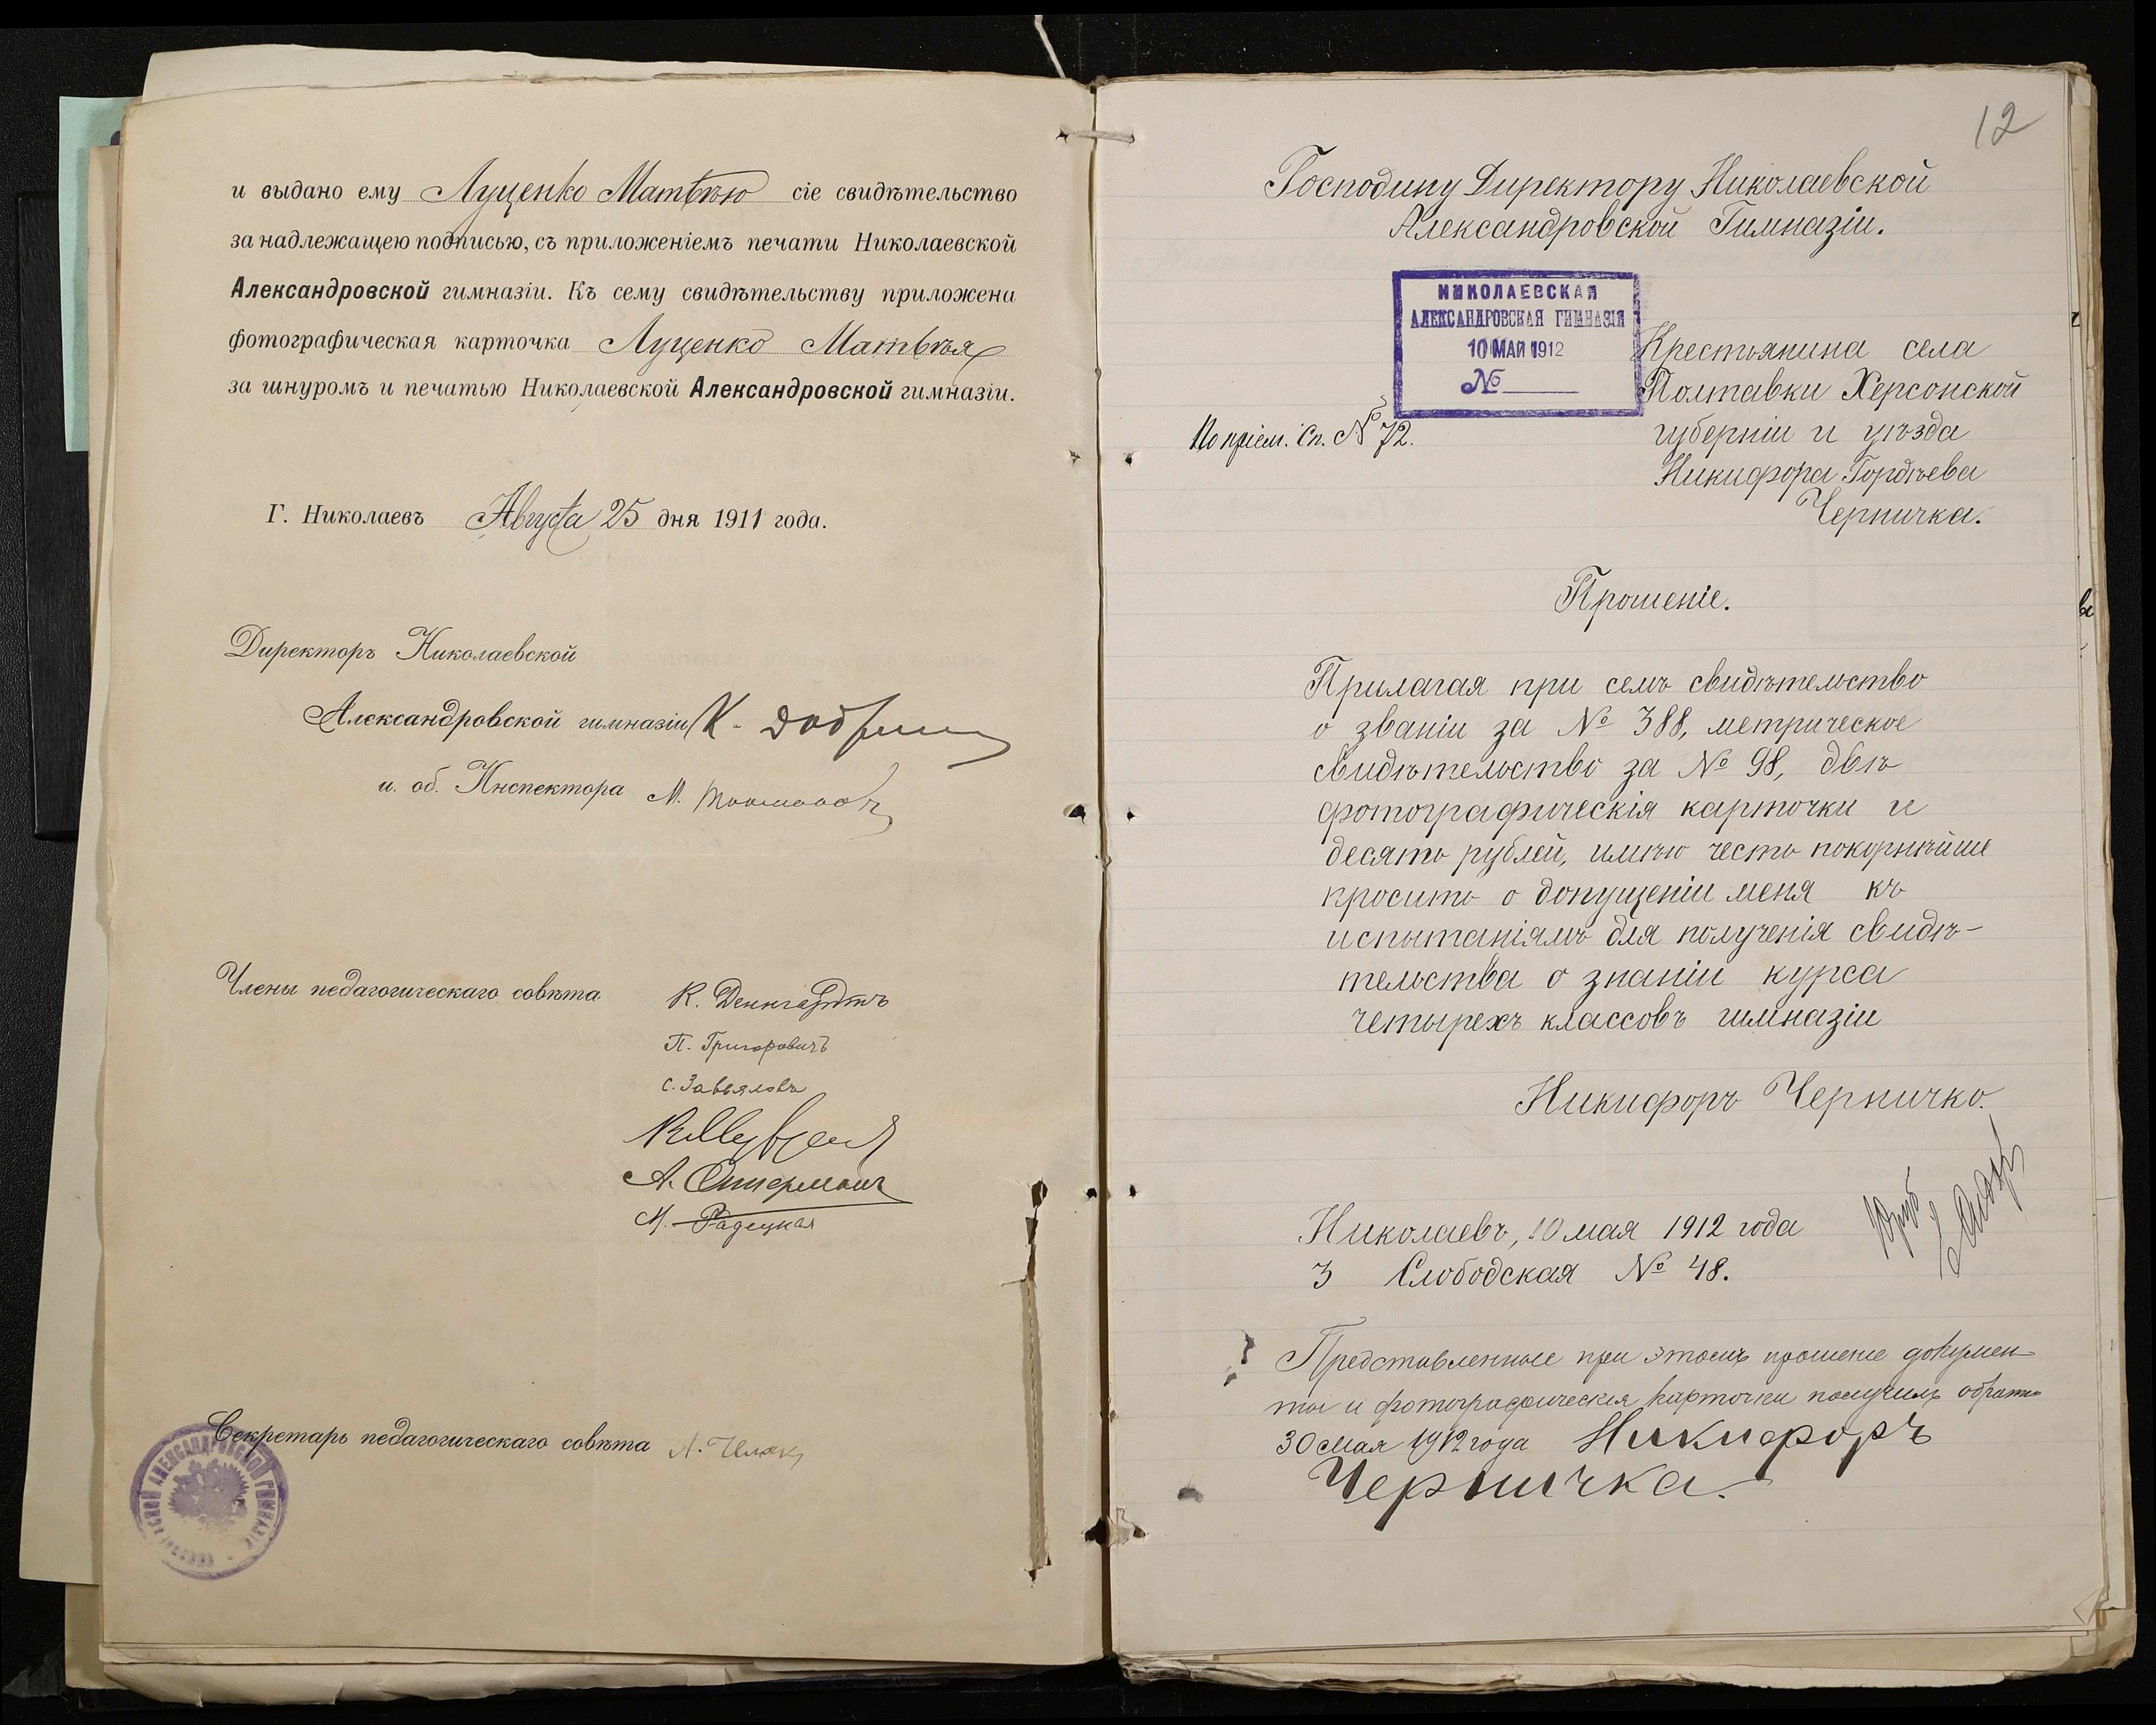 и выдано ему Луценко Матвѣю сіе свидѣтельство
за надлежащею подписью, съ приложеніемъ печати Николаевской
Александровской гимназіи. Къ сему свидѣтельству приложена
фотографическая карточка Луценко Матвѣя
за шнуромъ и печатью Николаевской Александровской гимназіи.
Г. Николаевъ Августа 25 дня 1911 года.
Директоръ Николаевской
Александровской гимназіи К.
и. об. Инспектора М.
Члены педагогическаго совѣта
К. Деннгардтъ
П. Григоровичъ
С. Завьяловъ
А.
М. Радецкая
Секретарь педагогическаго совѣта
12
Господину Директору Николаевской
Александровской Гимназіи.
НИКОЛАЕВСКАЯ
АЛЕКСАНДРОВСКАЯ ГИМНАЗІЯ
10 МАЯ 1912
№
По пріем. Сп. № 72.
Крестьянина села
Полтавки Херсонской
губерніи и уѣзда
Никифора Гордѣева
Черничка.
Прошеніе.
Прилагая при семъ свидѣтельство
о званіи за № 388, метрическое
свидѣтельство за № 98, двѣ
фотографическія карточки и
десять рублей, имѣю честь покорнѣйше
просить о допущеніи меня къ
испытаніямъ для полученія свидѣ-
тельства о знаніи курса
четырехъ классовъ гимназіи
Никифоръ Черничко.
Николаевъ, 10 мая 1912 года
3 Слободская № 48.
Представленные при этомъ прошеніе докумен-
ты и фотографическія карточки получилъ обратно
30 мая 1912 года Никифоръ
Черничка.